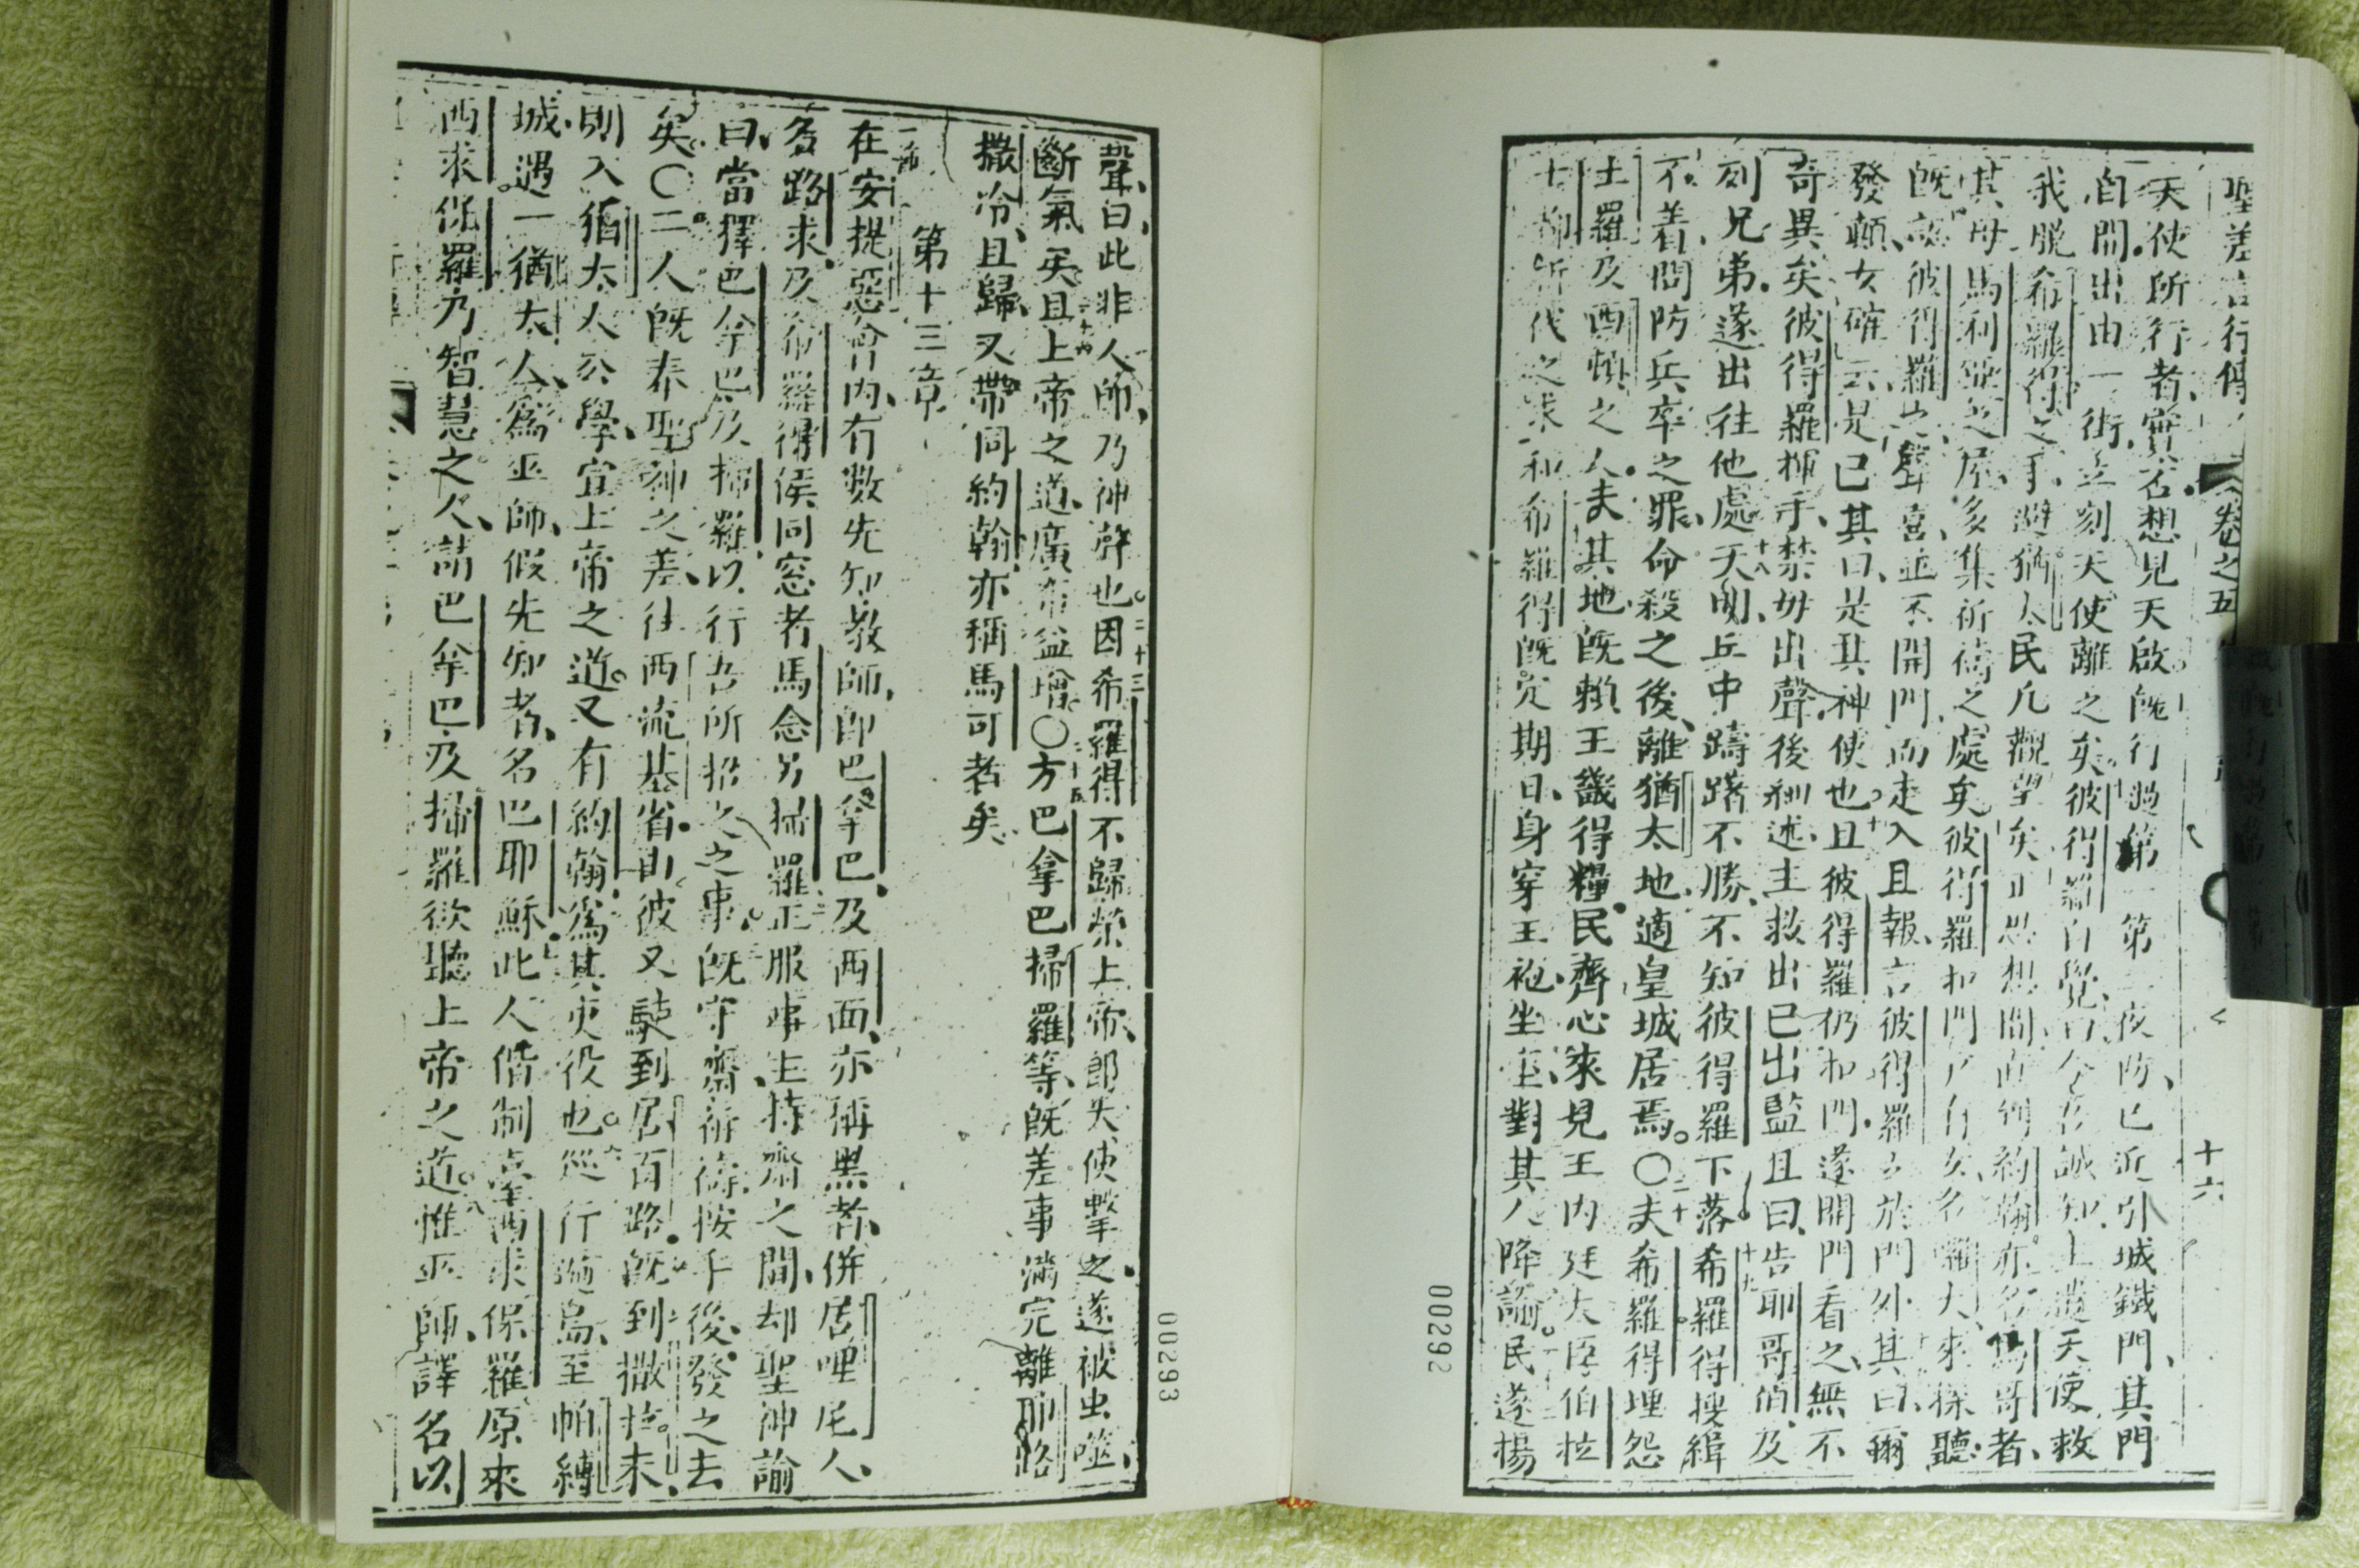 聖差言行傳 卷之五 十六
天使所行者實否想見天啟既行過第一第二夜防已近引城鐵門其門
自開出由一街立刻天使離之矣彼得羅自覺曰今吾誠知上遣天使救
我脫希羅得之手避猶太民凡觀望矣且思想間直到約翰亦名馬耳可者
其母馬利亞之屋多集祈禱之處矣彼得羅扣門戶有女名羅大來探聽
既認彼得羅之聲喜並不開門而走入且報言彼得羅立於門外其曰爾
發顛女確云是已其曰是其神使也且彼得羅仍扣門遂開門看之無不
奇異矣彼得羅揮手禁毋出聲後細述主救出已出監且曰告耶哥伯及
列兄弟遂出往他處天明丘中躊躇不勝不知彼得羅下落希羅得搜緝
不着問防兵卒之罪命殺之後離猶太地適皇城居焉〇夫希羅得埋怨
土羅及西頓之人夫其地既賴王畿得糧民齊心來見王內廷大臣伯拉
士都所代之求和希羅得既定期日身穿王袍坐座對其人降諭民遂揚
00292
聲曰此非人師乃神聲也因希羅得不歸榮上帝郎天使擊之遂被虫噬
斷氣矣且上帝之道廣布益增〇方巴拿巴掃羅等既差事滿完離耶路
撒冷且歸又帶同約翰亦稱馬可者矣
第十三章
一節 在安提惡會內有數先知教師即巴拿巴及西面亦稱黑者併居哩尼人
多路求及希羅得侯同窓者馬念另掃羅正服事主持齋之間却聖神諭
曰當擇巴拿巴及掃羅以行吾所招之之事既守齋祈禱按手後發之去
矣〇二人既奉聖神之差往西流基省由彼又駛到居百路既到撒拉未
則入猶太人公學宣上帝之道又有約翰為其使役也經行遍島至帕縳
城遇一猶太人為巫師假先知者名巴耶穌此人偕制臺西求保羅原來
西求保羅乃智慧之人請巴拿巴及掃羅欲聽上帝之道惟巫師譯名以
00293